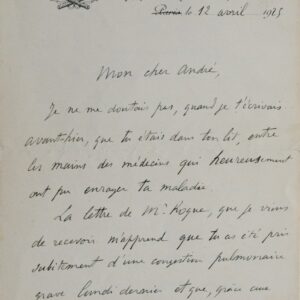 Paris le 12 avril 1925
Mon cher André,
Je ne me doutais pas, quand je t'écrivais
avant-hier, que tu étais dans ton lit, entre
les mains des médecins qui heureusement
ont pu enrayer ta maladie.
La lettre de Mr. Rogue, que je viens
de recevoir m'apprend que tu as été pris
subitement d'une congestion pulmonaire
grave lundi dernier et que, grâce aux